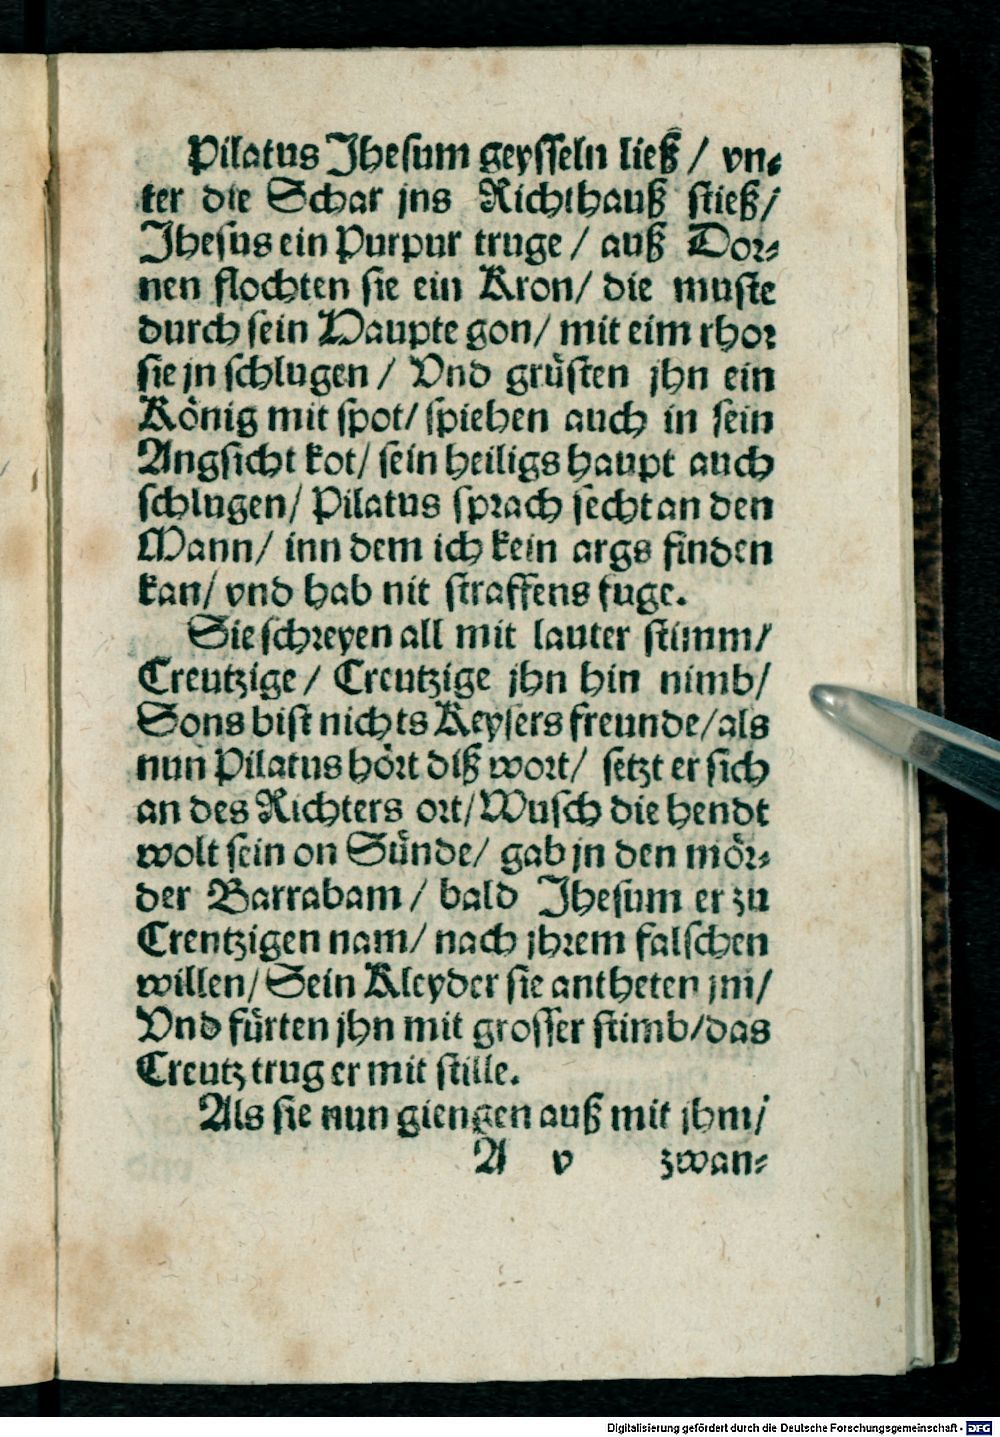 Pilatus Jhesum geysseln ließ / vn⸗
ter die Schar jns Richthauß stieß/
Jhesus ein Purpur truge / auß Dor⸗
nen flochten sie ein Kron/ die muste
durch sein Haupte gon/ mit eim rhor
sie jn schlugen / Vnd grüsten jhn ein
König mit spot/ spieben auch in sein
Angsicht kot/ sein heiligs haupt auch
schlugen/ Pilatus sprach secht an den
Mann/ inn dem ich kein args finden
kan/ vnd hab nit straffens fuge.
Sie schreyen all mit lauter stimm/
Creutzige / Creutzige jhn hin nimb/
Sons bist nichts Keysers freunde/als
nun Pilatus hört diß wort/ setzt er sich
an des Richters ort/Wusch die hendt
wolt sein on Sünde/ gab jn den mör⸗
der Barrabam / bald Jhesum er zu
Crentzigen nam/ nach jhrem falschen
willen/ Sein Kleyder sie antheten jm/
Vnd fürten jhn mit grosser stimb/das
Creutz trug er mit stille.
Als sie nun giengen auß mit jhm/
A v zwan⸗
Digitalisierung gefördert durch die Deutsche Forschungsgemeinschaft - DFG